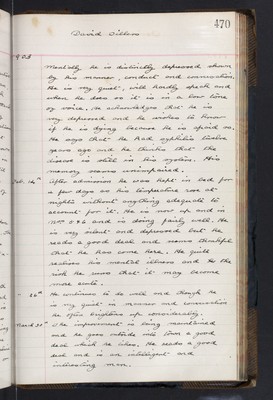 470
David Gibbons
1905
Mentally he is distinctly depressed shown
by his manner, conduct and conversation.
He is very quiet, will hardly speak and
when he does so it is in a low tone
of voice. He acknowledges that he is
very depressed and he wishes to know
if he is dying because he is afraid so.
He says that he had syphilis twelve
years ago and he thinks that the
disease is still in his system. His
memory seems unimpaired.
Feb. 14th After admission he was kept in bed for
a few days as his temperature rose at
nights without anything adequate to
account for it. He is now up and in
and is doing fairly well. He
is very silent and depressed but he
reads a good deal and seems thankful
that he has come here. He quite
realises his mental illness and the
risk he runs that it may become
more acute.
He continues to do well and though he
is very quiet in manner and conversation
he often brightens up considerably.
March The improvement is being maintained
and he goes outside into town a good
deal which he likes. He reads a good
deal and is an intelligent and
interesting man.